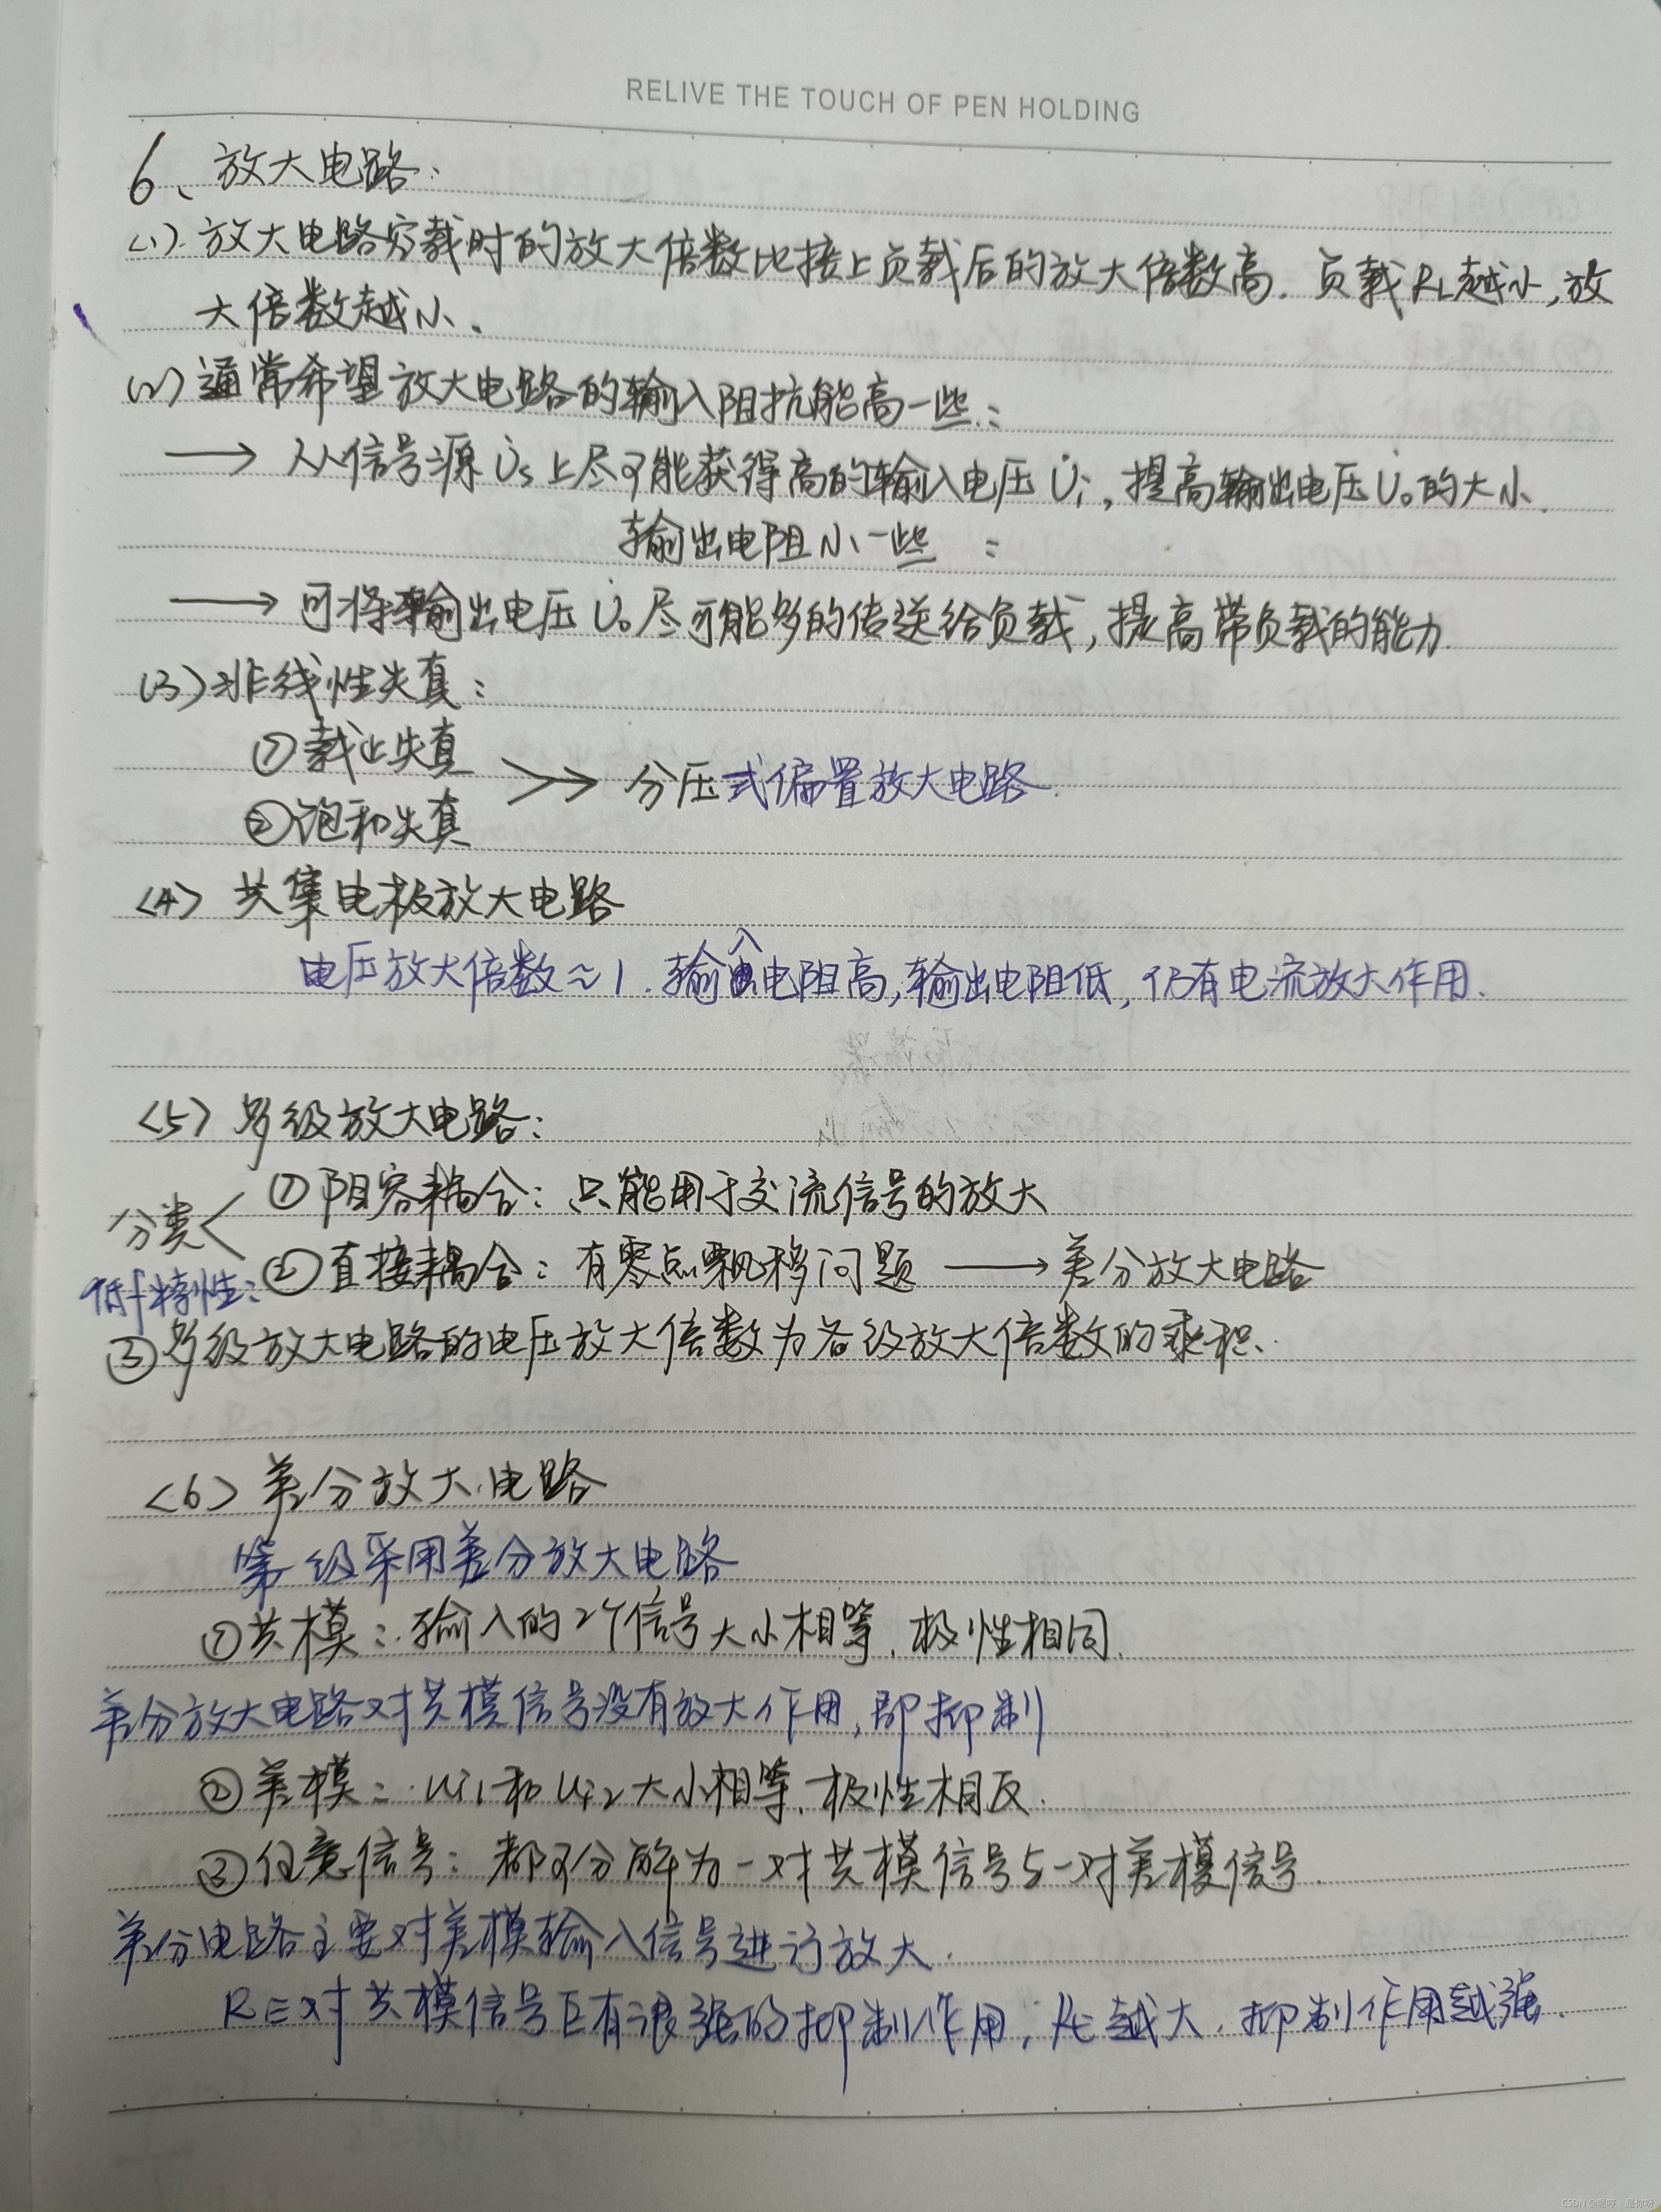 RELIVE THE TOUCH OF PEN HOLDING
6、放大电路:
<1>. 放大电路空载时的放大倍数比接上负载后的放大倍数高. 负载RL越小,放
大倍数越小.
(2) 通常希望放大电路的输入阻抗能高一些:
→ 从信号源U̇s上尽可能获得高的输入电压U̇i,提高输出电压U̇o的大小.
输出电阻小一些 :
→ 可将输出电压U̇o尽可能多的传送给负载,提高带负载的能力.
(3) 非线性失真:
①截止失真
>> → 分压式偏置放大电路.
②饱和失真
<4> 共集电极放大电路
电压放大倍数≈1. 输入电阻高,输出电阻低,仍有电流放大作用.
<5> 多级放大电路:
分类< ①阻容耦合: 只能用于交流信号的放大
②直接耦合: 有零点飘移问题 → 差分放大电路
低f特性:
③多级放大电路的电压放大倍数为各级放大倍数的乘积.
<6> 差分放大电路
第一级采用差分放大电路
①共模: 输入的2个信号大小相等、极性相同.
差分放大电路对共模信号没有放大作用,即抑制
②差模: ui1和ui2大小相等、极性相反.
③任意信号: 都可分解为一对共模信号与一对差模信号.
差分电路主要对差模输入信号进行放大.
RE对共模信号具有很强的抑制作用; RE越大,抑制作用越强.
CSDN @嗯哼、是你呀